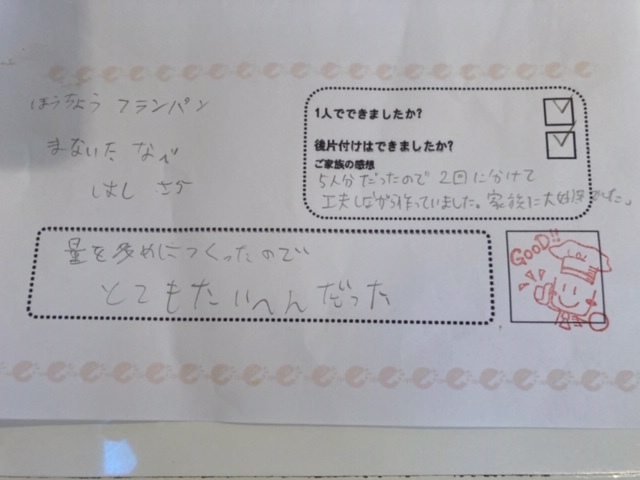 ほうちょう フランパン
まないた なべ
はし さら
1人でできましたか?
後片付けはできましたか?
ご家族の感想
5人分だったので 2回に分けて
工夫しながら作っていました。家族に大好評でした。
量を多めにつくったので
とてもたいへんだった
GOOD!!